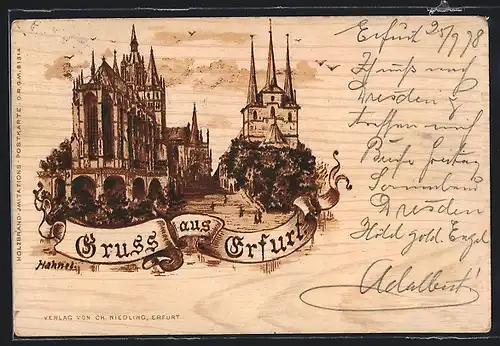 HOLZBRAND-IMITATIONS-POSTKARTE. D.R.G.M. 8131A
Gruss aus Erfurt.
Hahnel.
VERLAG VON CH. NIEDLING, ERFURT.
Erfurt 25/9 98
Ich muß nach
Dresden &
treffen mich
Freitag
Sonnabend
Dresden
gold. Engel
Adalbert